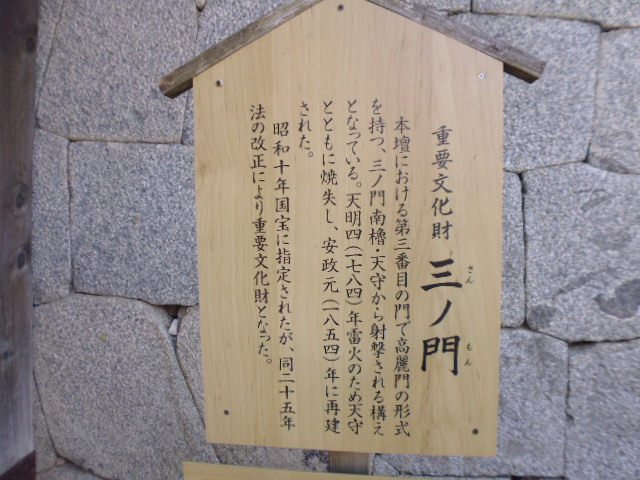 重要文化財 三ノ門
さん もん
本壇における第三番目の門で高麗門の形式
を持つ、三ノ門南櫓・天守から射撃される構え
となっている。天明四(一七八四)年雷火のため天守
とともに焼失し、安政元(一八五四)年に再建
された。
昭和十年国宝に指定されたが、同二十五年
法の改正により重要文化財となった。